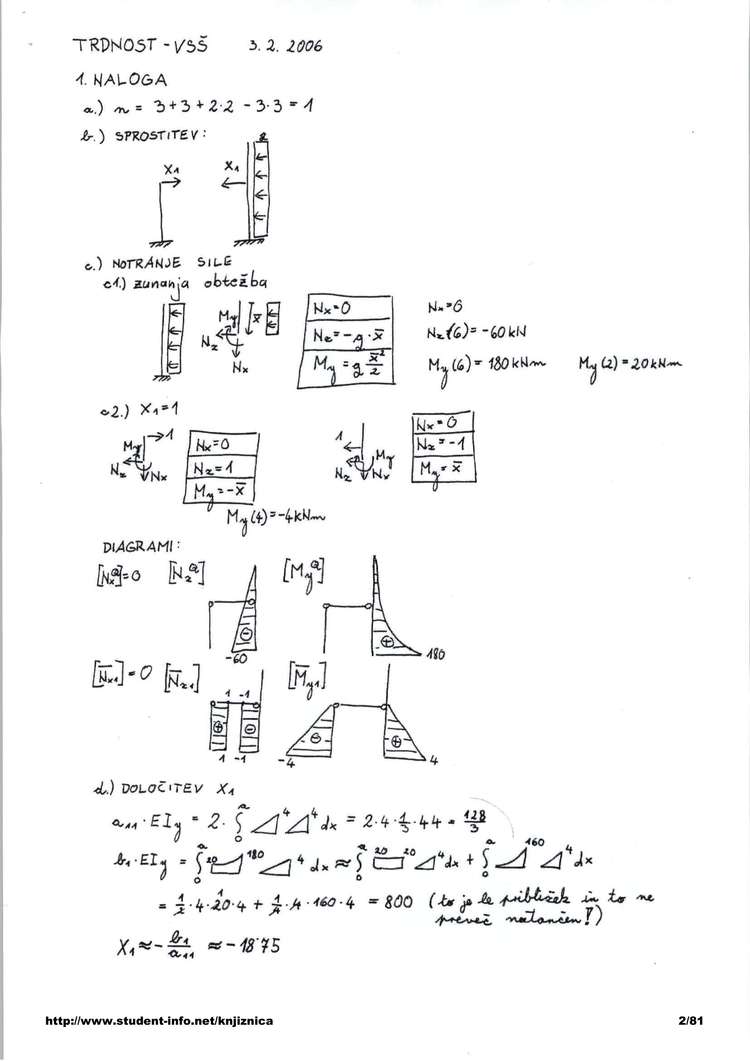 TRDNOST - VSŠ 3. 2. 2006
1. NALOGA
a.) n = 3+3+2·2 - 3·3 = 1
b.) SPROSTITEV:
X1 X1
c.) NOTRANJE SILE
c1.) zunanja obtežba
My x̄ Nz Nx
Nx=0
Nz=-q·x̄
My=q x̄²/2
Nx=0
Nz(6)=-60kN
My(6)=180kNm My(2)=20kNm
c2.) X1=1
1 My Nz Nx
Nx=0
Nz=1
My=-x̄
My(4)=-4kNm
1 My Nz Nx
Nx=0
Nz=-1
My=x̄
DIAGRAMI:
[NxQ]=0 [NzQ] [MyQ]
-60 180
[N̄x1]=0 [N̄z1] [M̄y1]
1 -1
1 -1 -4 4
d.) DOLOČITEV X1
a11·EIy = 2·∫0a 4 4 dx = 2·4·1/3·4·4 = 128/3
b1·EIy = ∫0a 20 180 4 dx ≈ ∫0a 20 20 4 dx + ∫0a 160 4 dx
= 1/2·4·20·4 + 1/4·4·160·4 = 800 (to je le približek in to ne
preveč natančen!)
X1 ≈ - b1/a11 ≈ -18'75
http://www.student-info.net/knjiznica 2/81